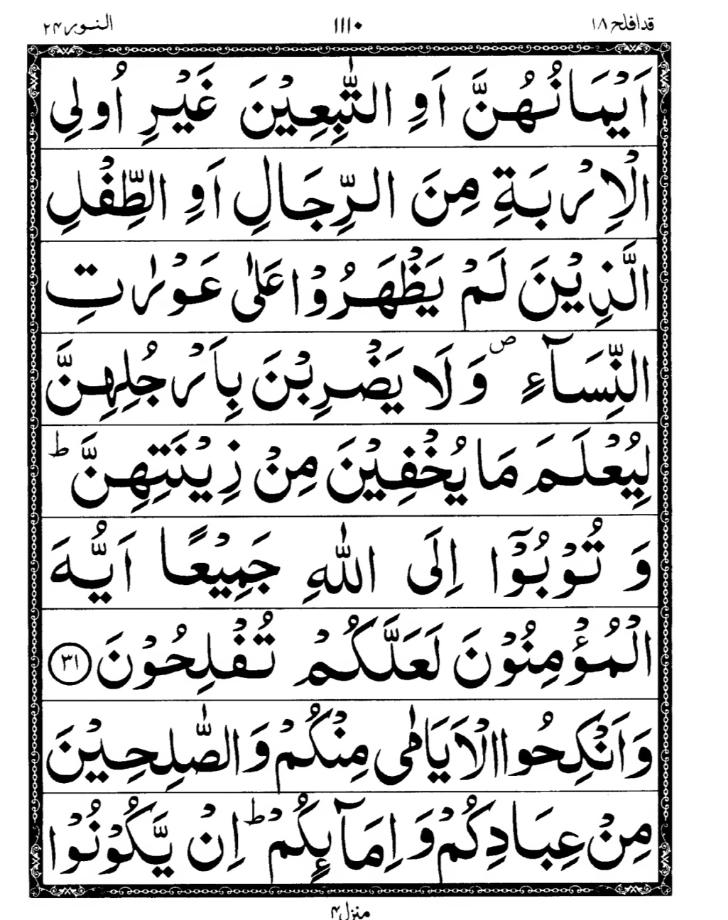 قدافلح ۱۸ ۱۱۱۰ النور ۲۴
اَيْمَانُهُنَّ اَوِ التّٰبِعِيْنَ غَيْرِ اُولِي
الْاِرْبَةِ مِنَ الرِّجَالِ اَوِ الطِّفْلِ
الَّذِيْنَ لَمْ يَظْهَرُوْا عَلٰى عَوْرٰتِ
النِّسَآءِ ۖ وَلَا يَضْرِبْنَ بِاَرْجُلِهِنَّ
لِيُعْلَمَ مَا يُخْفِيْنَ مِنْ زِيْنَتِهِنَّ ؕ
وَ تُوْبُوْۤا اِلَى اللّٰهِ جَمِيْعًا اَيُّهَ
الْمُؤْمِنُوْنَ لَعَلَّكُمْ تُفْلِحُوْنَ ۳۱
وَاَنْكِحُوا الْاَيَامٰى مِنْكُمْ وَالصّٰلِحِيْنَ
مِنْ عِبَادِكُمْ وَ اِمَآىِٕكُمْ ؕ اِنْ يَّكُوْنُوْا
منزل ۴